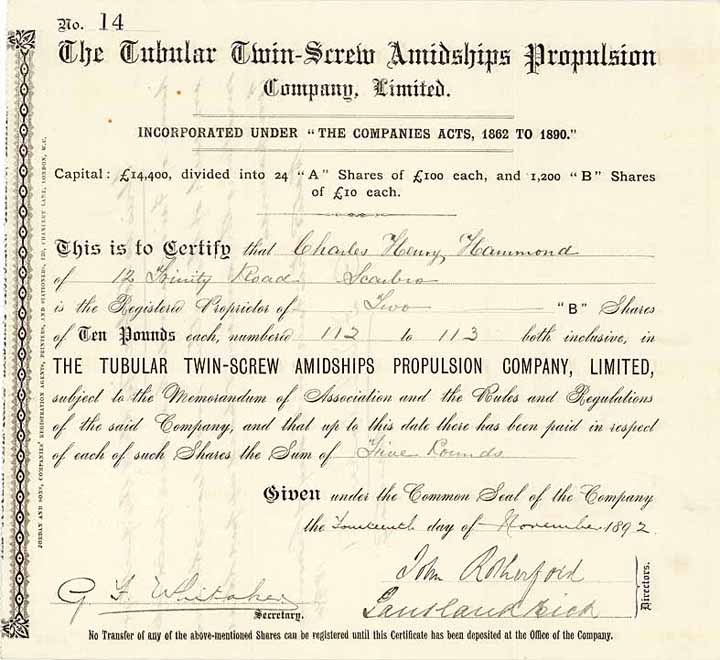 No. 14
The Tubular Twin-Screw Amidships Propulsion
Company, Limited.
INCORPORATED UNDER "THE COMPANIES ACTS, 1862 TO 1890."
Capital: £14,400, divided into 24 "A" Shares of £100 each, and 1,200 "B" Shares
of £10 each.
This is to Certify that Charles Henry Hammond
of 12 Trinity Road Scarbro
is the Registered Proprietor of Two "B" Shares
of Ten Pounds each, numbered 112 to 113 both inclusive, in
THE TUBULAR TWIN-SCREW AMIDSHIPS PROPULSION COMPANY, LIMITED,
subject to the Memorandum of Association and the Rules and Regulations
of the said Company, and that up to this date there has been paid in respect
of each of such Shares the Sum of Five Pounds
Given under the Common Seal of the Company
the Fourteenth day of November 1892
John Rotherford
Directors.
G F Whitaker
Secretary.
No Transfer of any of the above-mentioned Shares can be registered until this Certificate has been deposited at the Office of the Company.
JORDAN AND SONS, COMPANIES' REGISTRATION AGENTS, PRINTERS, AND STATIONERS, 120, CHANCERY LANE, LONDON, W.C.